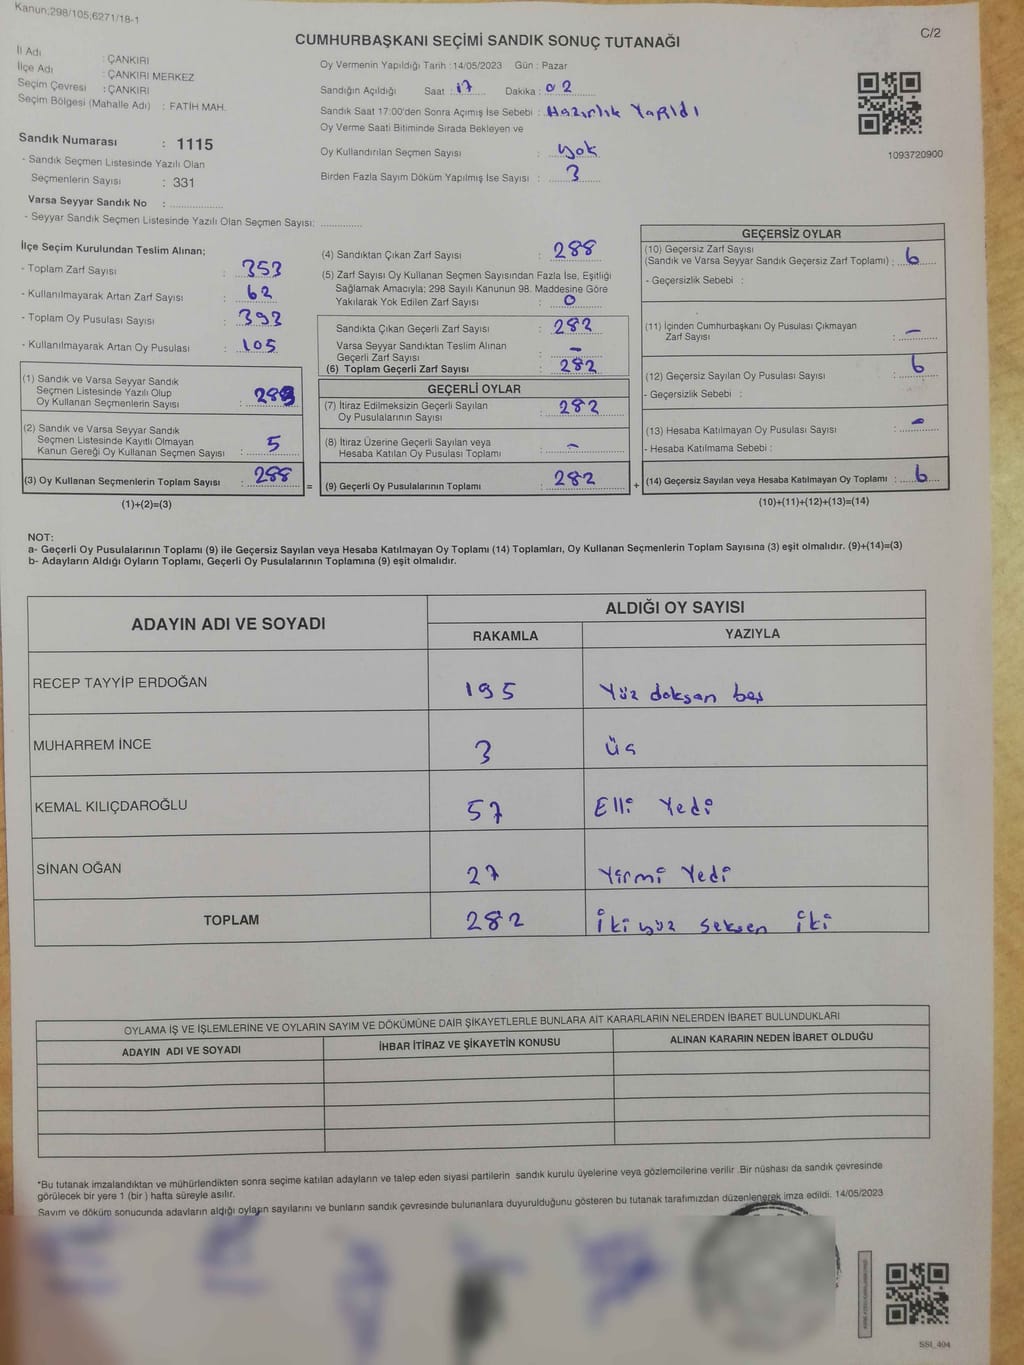 Kanun;298/105;6271/18-1
C/2
CUMHURBAŞKANI SEÇİMİ SANDIK SONUÇ TUTANAĞI
İl Adı : ÇANKIRI
İlçe Adı : ÇANKIRI MERKEZ
Seçim Çevresi : ÇANKIRI
Seçim Bölgesi (Mahalle Adı) : FATİH MAH.
Sandık Numarası : 1115
- Sandık Seçmen Listesinde Yazılı Olan
Seçmenlerin Sayısı : 331
Varsa Seyyar Sandık No : ..............
- Seyyar Sandık Seçmen Listesinde Yazılı Olan Seçmen Sayısı: ..............
Oy Vermenin Yapıldığı Tarih :14/05/2023 Gün : Pazar
Sandığın Açıldığı Saat : 17 Dakika : 02
Sandık Saat 17:00'den Sonra Açımış İse Sebebi : Hazırlık Yapıldı
Oy Verme Saati Bitiminde Sırada Bekleyen ve
Oy Kullandırılan Seçmen Sayısı : yok
Birden Fazla Sayım Döküm Yapılmış İse Sayısı : 3
1093720900
İlçe Seçim Kurulundan Teslim Alınan;
- Toplam Zarf Sayısı : 353
- Kullanılmayarak Artan Zarf Sayısı : 62
- Toplam Oy Pusulası Sayısı : 393
- Kullanılmayarak Artan Oy Pusulası : 105
(1) Sandık ve Varsa Seyyar Sandık
Seçmen Listesinde Yazılı Olup
Oy Kullanan Seçmenlerin Sayısı :
(2) Sandık ve Varsa Seyyar Sandık
Seçmen Listesinde Kayıtlı Olmayan
Kanun Gereği Oy Kullanan Seçmen Sayısı : 5
(3) Oy Kullanan Seçmenlerin Toplam Sayısı : 288
(1)+(2)=(3)
=
(4) Sandıktan Çıkan Zarf Sayısı : 288
(5) Zarf Sayısı Oy Kullanan Seçmen Sayısından Fazla İse, Eşitliği
Sağlamak Amacıyla; 298 Sayılı Kanunun 98. Maddesine Göre
Yakılarak Yok Edilen Zarf Sayısı : 0
Sandıkta Çıkan Geçerli Zarf Sayısı : 282
Varsa Seyyar Sandıktan Teslim Alınan
Geçerli Zarf Sayısı : -
(6) Toplam Geçerli Zarf Sayısı : 282
GEÇERLİ OYLAR
(7) İtiraz Edilmeksizin Geçerli Sayılan : 282
Oy Pusulalarının Sayısı
(8) İtiraz Üzerine Geçerli Sayılan veya : -
Hesaba Katılan Oy Pusulası Toplamı
(9) Geçerli Oy Pusulalarının Toplamı : 282
+
GEÇERSİZ OYLAR
(10) Geçersiz Zarf Sayısı
(Sandık ve Varsa Seyyar Sandık Geçersiz Zarf Toplamı) : 6
- Geçersizlik Sebebi :
(11) İçinden Cumhurbaşkanı Oy Pusulası Çıkmayan
Zarf Sayısı : -
(12) Geçersiz Sayılan Oy Pusulası Sayısı : 6
- Geçersizlik Sebebi :
(13) Hesaba Katılmayan Oy Pusulası Sayısı : -
- Hesaba Katılmama Sebebi :
(14) Geçersiz Sayılan veya Hesaba Katılmayan Oy Toplamı : 6
(10)+(11)+(12)+(13)=(14)
NOT:
a- Geçerli Oy Pusulalarının Toplamı (9) ile Geçersiz Sayılan veya Hesaba Katılmayan Oy Toplamı (14) Toplamları, Oy Kullanan Seçmenlerin Toplam Sayısına (3) eşit olmalıdır. (9)+(14)=(3)
b- Adayların Aldığı Oyların Toplamı, Geçerli Oy Pusulalarının Toplamına (9) eşit olmalıdır.
ADAYIN ADI VE SOYADI
ALDIĞI OY SAYISI
RAKAMLA YAZIYLA
RECEP TAYYİP ERDOĞAN 195 Yüz doksan beş
MUHARREM İNCE 3 Üç
KEMAL KILIÇDAROĞLU 57 Elli Yedi
SİNAN OĞAN 27 Yirmi Yedi
TOPLAM 282 İki yüz seksen iki
OYLAMA İŞ VE İŞLEMLERİNE VE OYLARIN SAYIM VE DÖKÜMÜNE DAİR ŞİKAYETLERLE BUNLARA AİT KARARLARIN NELERDEN İBARET BULUNDUKLARI
ADAYIN ADI VE SOYADI İHBAR İTİRAZ VE ŞİKAYETİN KONUSU ALINAN KARARIN NEDEN İBARET OLDUĞU
*Bu tutanak imzalandıktan ve mühürlendikten sonra seçime katılan adayların ve talep eden siyasi partilerin sandık kurulu üyelerine veya gözlemcilerine verilir .Bir nüshası da sandık çevresinde
görülecek bir yere 1 (bir ) hafta süreyle asılır.
Sayım ve döküm sonucunda adayların aldığı oyların sayılarını ve bunların sandık çevresinde bulunanlara duyurulduğunu gösteren bu tutanak tarafımızdan düzenlenerek imza edildi. 14/05/2023
SSI_404